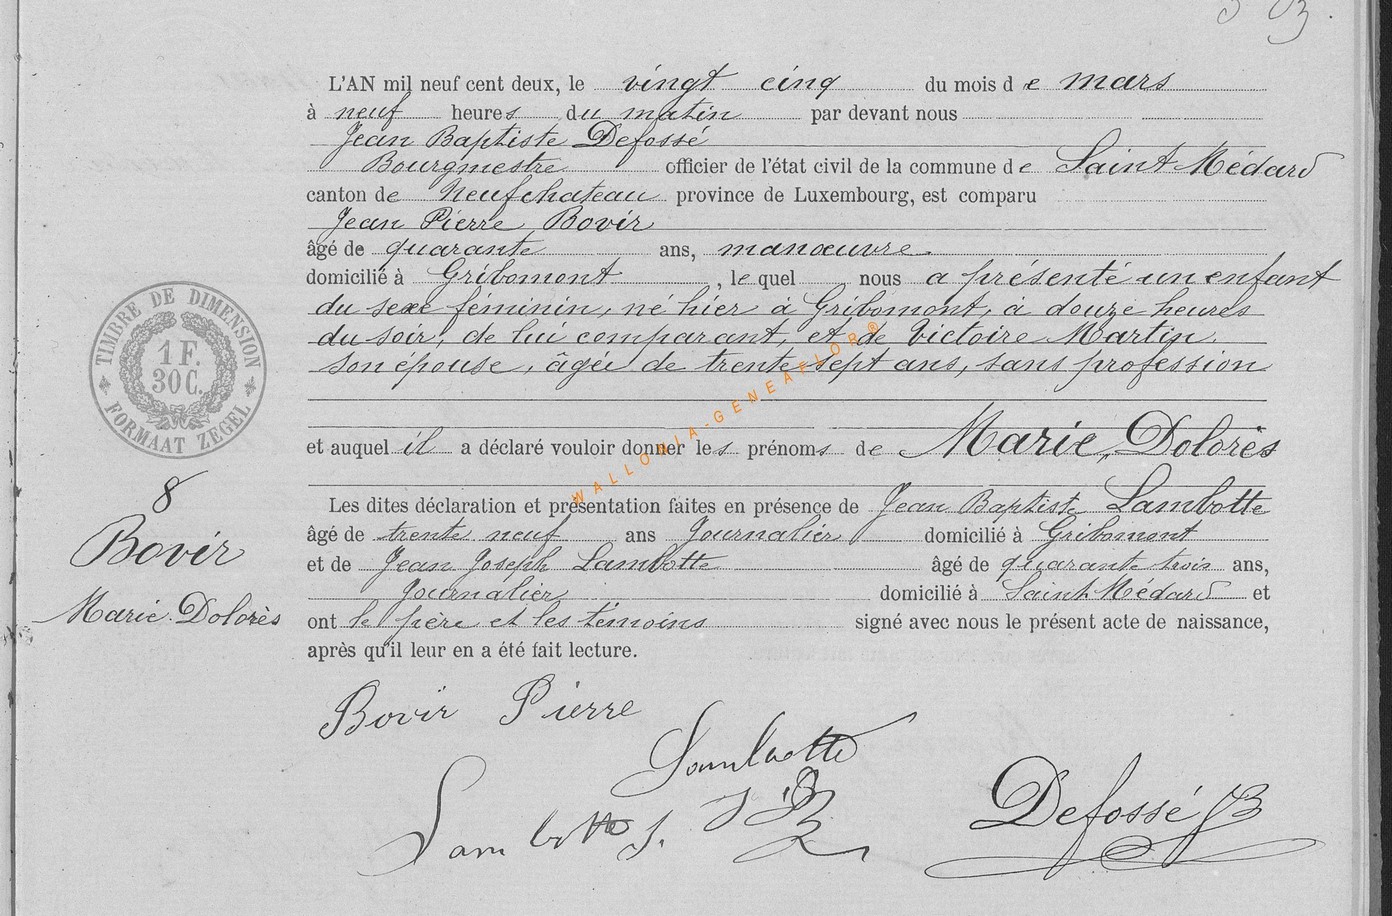 L'AN mil neuf cent deux, le vingt cinq du mois de mars
à neuf heures du matin par devant nous
Jean Baptiste Defossé
Bourgmestre officier de l'état civil de la commune de Saint Médard
canton de Neufchateau province de Luxembourg, est comparu
Jean Pierre Bovir
âgé de quarante ans, manœuvre
domicilié à Gribomont, lequel nous a présenté un enfant
du sexe féminin, né hier à Gribomont, à douze heures
du soir, de lui comparant, et de Victoire Martin,
son épouse, âgée de trente sept ans, sans profession
et auquel il a déclaré vouloir donner les prénoms de Marie, Dolorès
Les dites déclaration et présentation faites en présence de Jean Baptiste Lambotte
âgé de trente neuf ans Journalier domicilié à Gribomont
et de Jean Joseph Lambotte âgé de quarante trois ans,
Journalier domicilié à Saint Médard et
ont le père et les témoins signé avec nous le présent acte de naissance,
après qu'il leur en a été fait lecture.
TIMBRE DE DIMENSION
1 F.
30 C.
FORMAAT ZEGEL
8
Bovir
Marie Dolorès
Bovir Pierre
Lambotte
J B
Lambotte J.
Defossé JB
WALLONIA-GENEAFLOR®